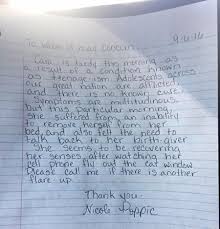 To whom it may concern, 9/6/16
Cara is tardy this morning as
a result of a condition known
as teenage-ism. Adolescents across
our great nation are afflicted,
and there is no known cure.
Symptoms are multitudinous,
but this particular morning,
she suffered from an inability
to remove herself from her
bed, and also felt the need to
talk back to her birth-giver.
She seems to be recovering
her senses after watching her
cell phone fly out the car window.
Please call me if there is another
flare-up.
Thank you-
Nicole Poppic